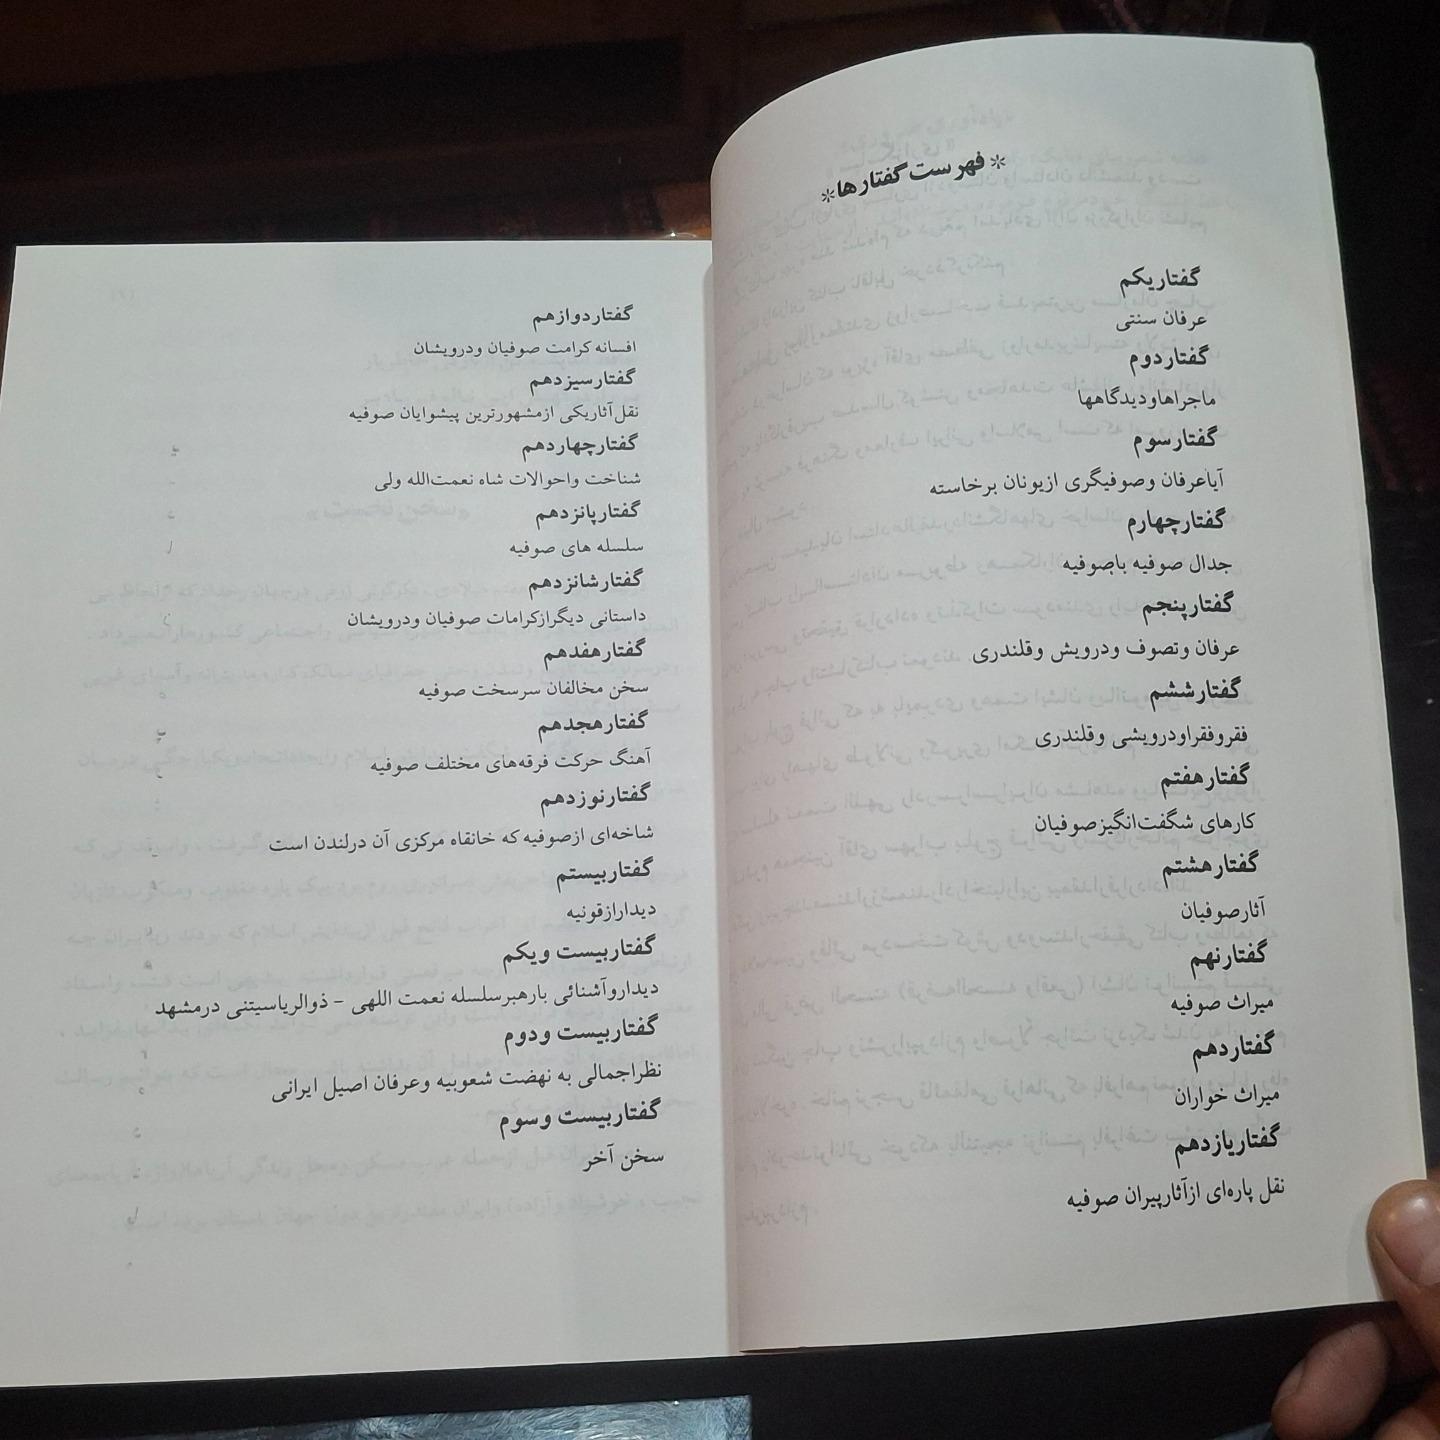 * فهرست گفتارها *
گفتاریکم
عرفان سنتی
گفتاردوم
ماجراهاودیدگاهها
گفتارسوم
آیاعرفان وصوفیگری ازیونان برخاسته
گفتارچهارم
جدال صوفیه باصوفیه
گفتارپنجم
عرفان وتصوف ودرویش وقلندری
گفتارششم
فقروفقراودرویشی وقلندری
گفتارهفتم
کارهای شگفت‌انگیزصوفیان
گفتارهشتم
آثارصوفیان
گفتارنهم
میراث صوفیه
گفتاردهم
میراث خواران
گفتاریازدهم
نقل پاره‌ای ازآثارپیران صوفیه
گفتاردوازهم
افسانه کرامت صوفیان ودرویشان
گفتارسیزدهم
نقل‌آثاریکی ازمشهورترین پیشوایان صوفیه
گفتارچهاردهم
شناخت واحوالات شاه نعمت‌الله ولی
گفتارپانزدهم
سلسله های صوفیه
گفتارشانزدهم
داستانی دیگرازکرامات صوفیان ودرویشان
گفتارهفدهم
سخن مخالفان سرسخت صوفیه
گفتارهجدهم
آهنگ حرکت فرقه‌های مختلف صوفیه
گفتارنوزدهم
شاخه‌ای ازصوفیه که خانقاه مرکزی آن درلندن است
گفتاربیستم
دیدارازقونیه
گفتاربیست ویکم
دیداروآشنائی بارهبرسلسله نعمت اللهی - ذوالریاسیتنی درمشهد
گفتاربیست ودوم
نظراجمالی به نهضت شعوبیه وعرفان اصیل ایرانی
گفتاربیست وسوم
سخن آخر